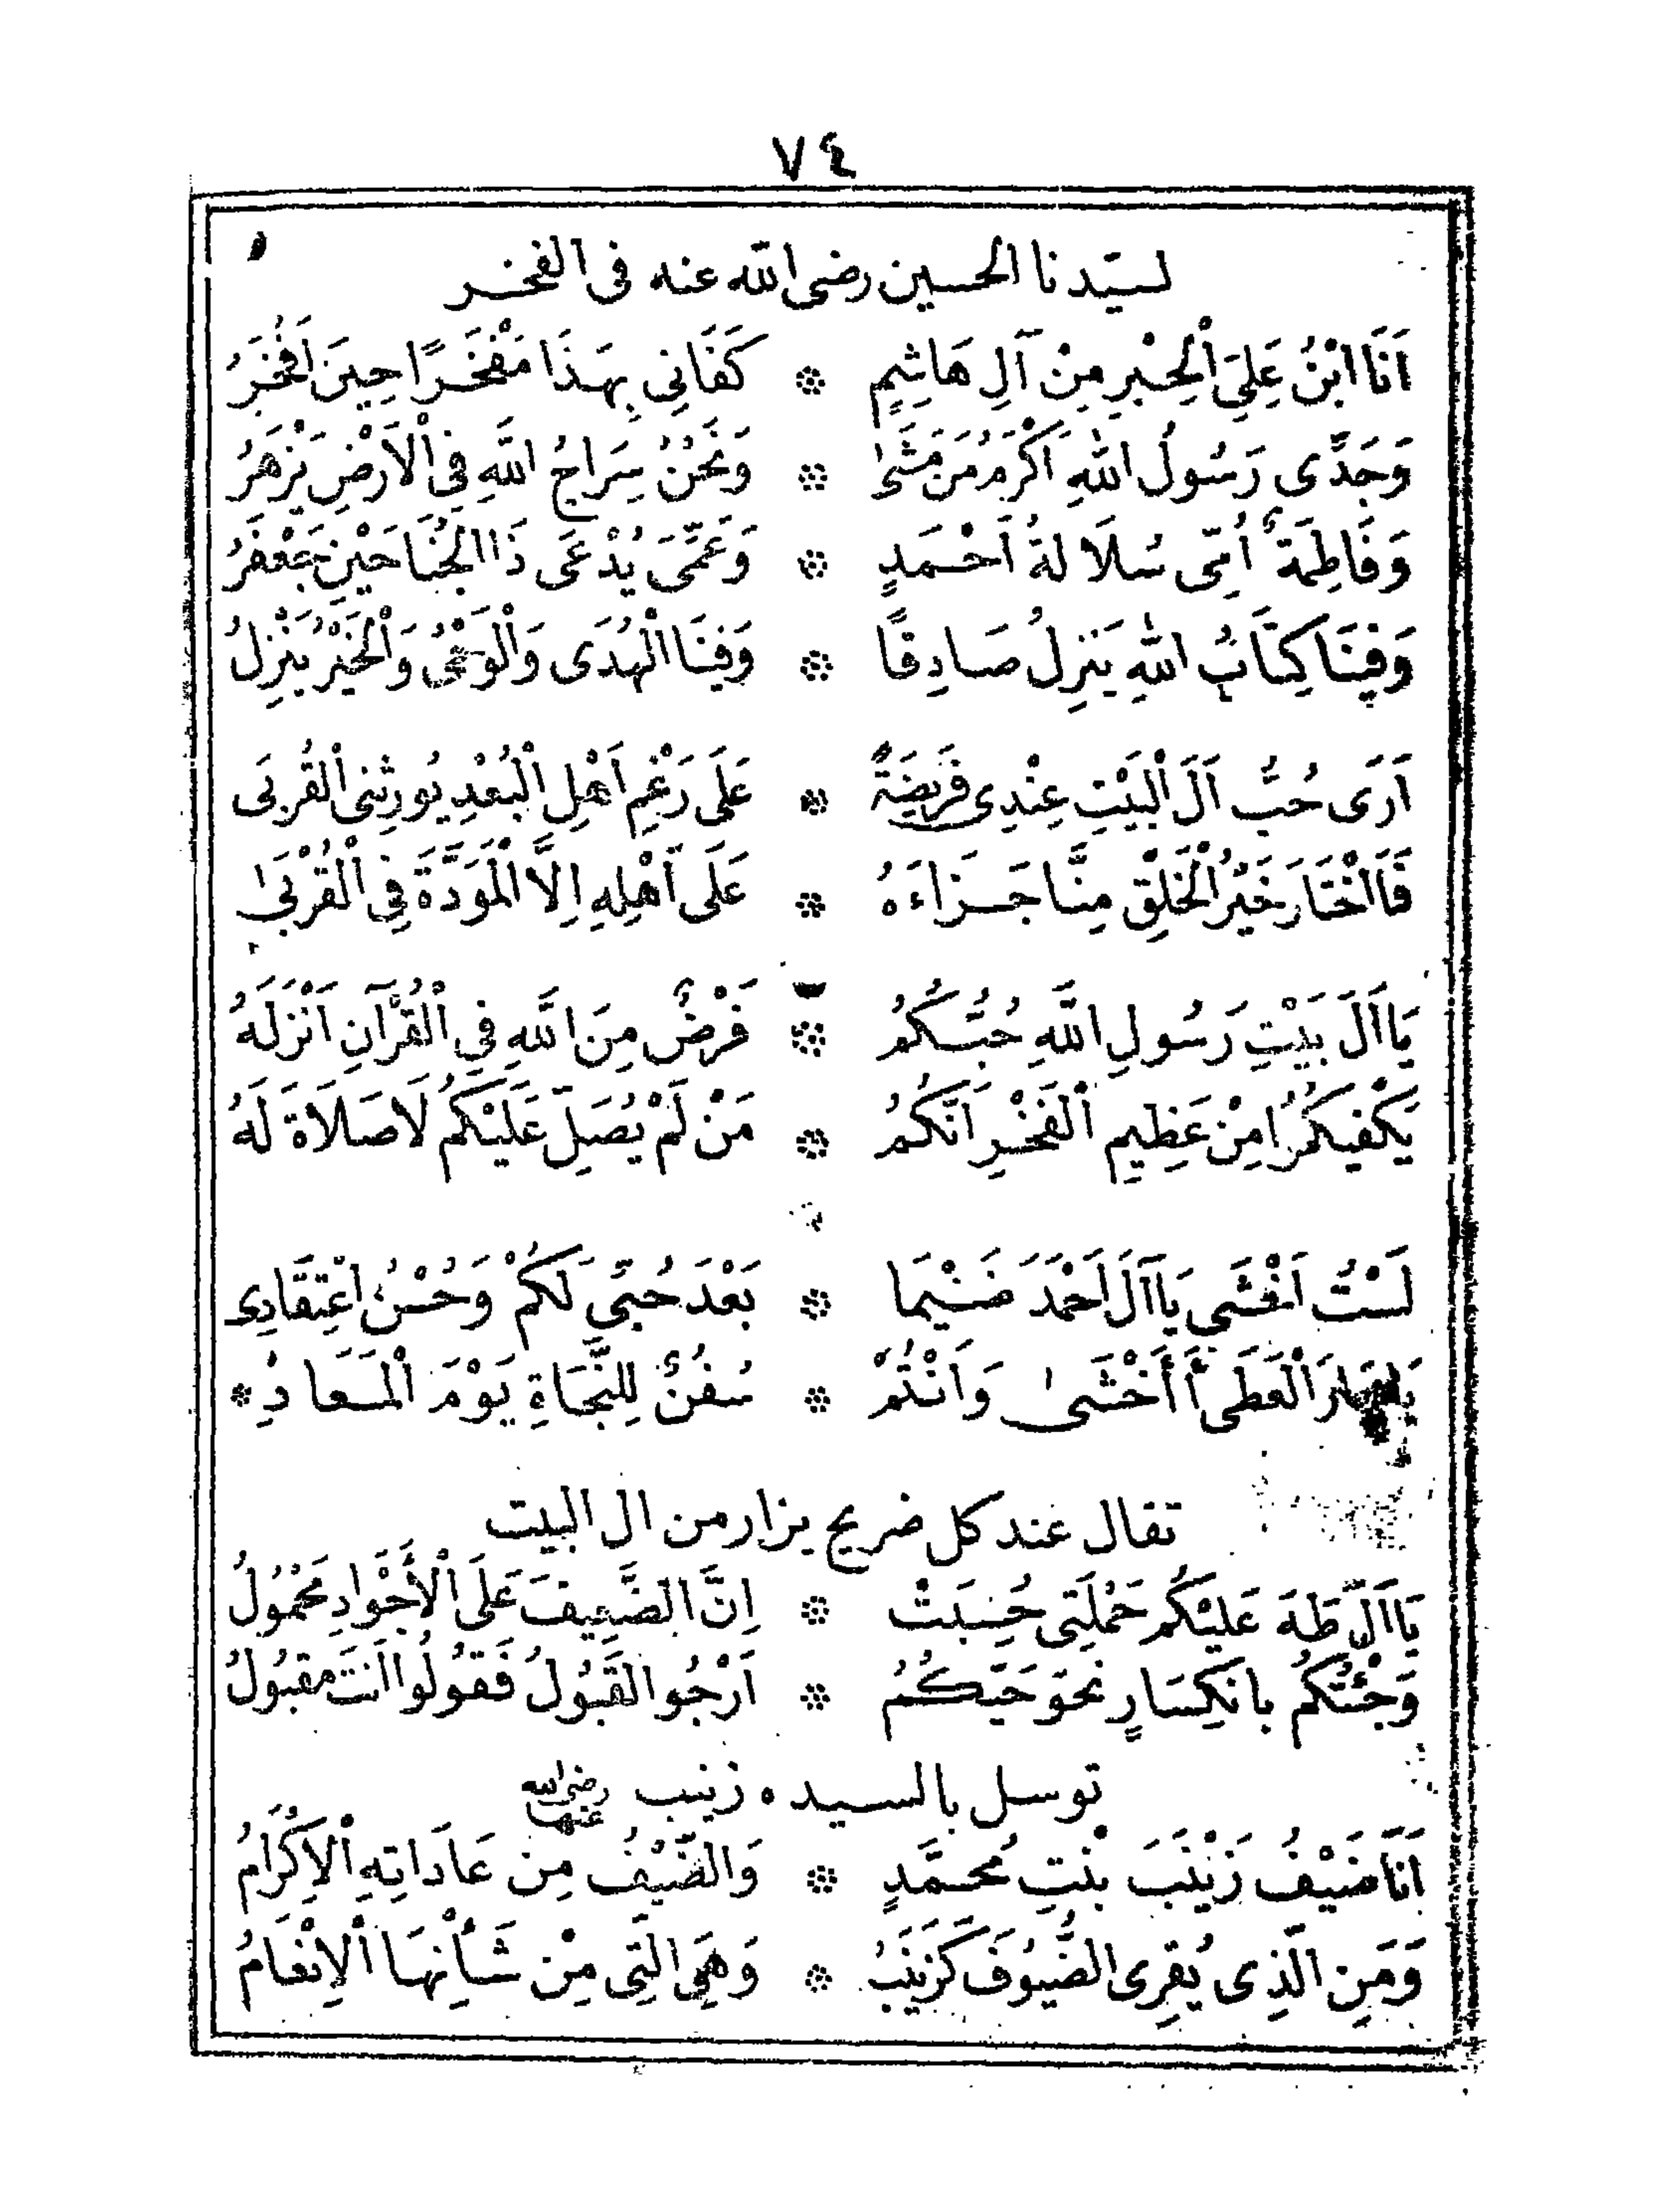 ٧٤
لسيّدنا الحسين رضى الله عنه فى الفخر
اَنَا ابْنُ عَلِيِّ الْحِبْرِ مِنْ آلِ هَاشِمٍ ❊ كَفَانِي بِهَذَا مَفْخَرًا حِينَ اَفْخَرُ
وَجَدِّى رَسُولُ اللهِ اَكْرَمُ مَنْ مَشَىٰ ❊ وَنَحْنُ سِرَاجُ اللَّهِ فِي الْاَرْضِ يَزْهَرُ
وَفَاطِمَةٌ اُمِّى سُلَالَةُ اَحْمَدٍ ❊ وَعَمِّىَ يُدْعَى ذَا الْجُنَاحَيْنِ جَعْفَرُ
وَفِينَا كِتَابُ اللهِ يَنْزِلُ صَادِقًا ❊ وَفِينَا الْهُدَى وَالْوَحْىُ وَالْخَيْرُ يَنْزِلُ
اَرَى حُبَّ آلَ الْبَيْتِ عِنْدِى فَرِيضَةً ❊ عَلَى رَغْمِ اَهْلِ الْبُعْدِ يُورِثُنِى الْقُربَى
فَااَخْتَارَ خَيْرُ الْخَلْقِ مِنَّا جَزَاءَهُ ❊ عَلَى اَهْلِهِ اِلَّا الْمَوَدَّةَ فِي الْقُرْبَىٰ
يَاآلَ بَيْتِ رَسُولِ اللَّهِ حُبُّكُمُ ❊ فَرْضٌ مِنَ اللَّهِ فِي الْقُرْآنِ اَنْزَلَهُ
يَكْفِيكُمُ امِنْ عَظِيمِ الْفَخْرِ اَنَّكُمُ ❊ مَنْ لَمْ يُصَلِّ عَلَيْكُمُ لَا صَلَاةَ لَهُ
لَسْتُ اَخْشَى يَاآلَ اَحْمَدَ ضَيْمًا ❊ بَعْدَ حُبِّى لَكُمْ وَحُسْنُ اعْتِقَادِى
الْعَطَى أَأَخْشَىٰ وَاَنْتُمْ ❊ سُفُنٌ لِلنَّجَاةِ يَوْمَ الْمَعَادِ *
تقال عند كل ضريح يزار من ال البيت
يَاآلَ طَهَ عَلَيْكُم حَمْلَتِى حُسِبَتْ ❊ اِنَّ الضَّعِيفَ عَلَى الْأَجْوَادِ مَحْمُولُ
وَجْئْتُكُمُ بانْكِسَارٍ نحوَ حَيِّكُمُ ❊ اَرْجُوالقَبُولُ فَقُولُوا اَنتَ مقبُولُ
توسل بالسيده زينب رضى الله عنها
اَنَا ضَيْفُ زَيْنَبَ بْنتِ مُحمَّدٍ ❊ وَالضَّيْفُ مِن عَادَاتِهِ الْاِكْرَامُ
وَمَنِ الَّذِى يُقرِى الضُّيُوفَ كَزَينَبُ ❊ وَهِيَ الَّتِى مِنْ شَأْنِهَا الْاِنْعَامُ